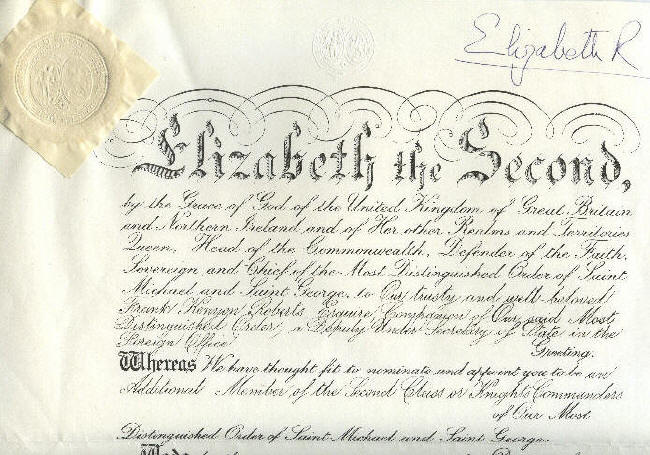 Elizabeth R
Elizabeth the Second,
by the Grace of God of the United Kingdom of Great Britain
and Northern Ireland and of Her other Realms and Territories
Queen, Head of the Commonwealth, Defender of the Faith,
Sovereign and Chief of the Most Distinguished Order of Saint
Michael and Saint George, to Our trusty and well beloved
Frank Kenyon Roberts Esquire, Companion of Our said Most
Distinguished Order, a Deputy Under Secretary of State in the
Foreign Office Greeting.
Whereas We have thought fit to nominate and appoint you to be an
Additional Member of the Second Class or Knights Commanders
of Our Most
Distinguished Order of Saint Michael and Saint George.